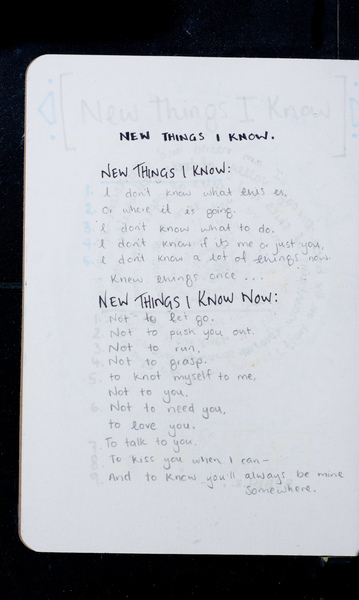 New Things I Know
NEW THINGS I KNOW.
NEW THINGS I KNOW:
1. I don't know what this is,
2. Or where it is going.
3. I don't know what to do.
4. I don't know if it's me or just you,
5. I don't know a lot of things now
Knew things once ...
NEW THINGS I KNOW NOW:
1. Not to let go.
2. Not to push you out.
3. Not to run,
4. Not to grasp.
5. to knot myself to me,
Not to you.
6. Not to need you,
to love you.
7. To talk to you.
8. To kiss you when I can-
9. And to know you'll always be mine
somewhere.